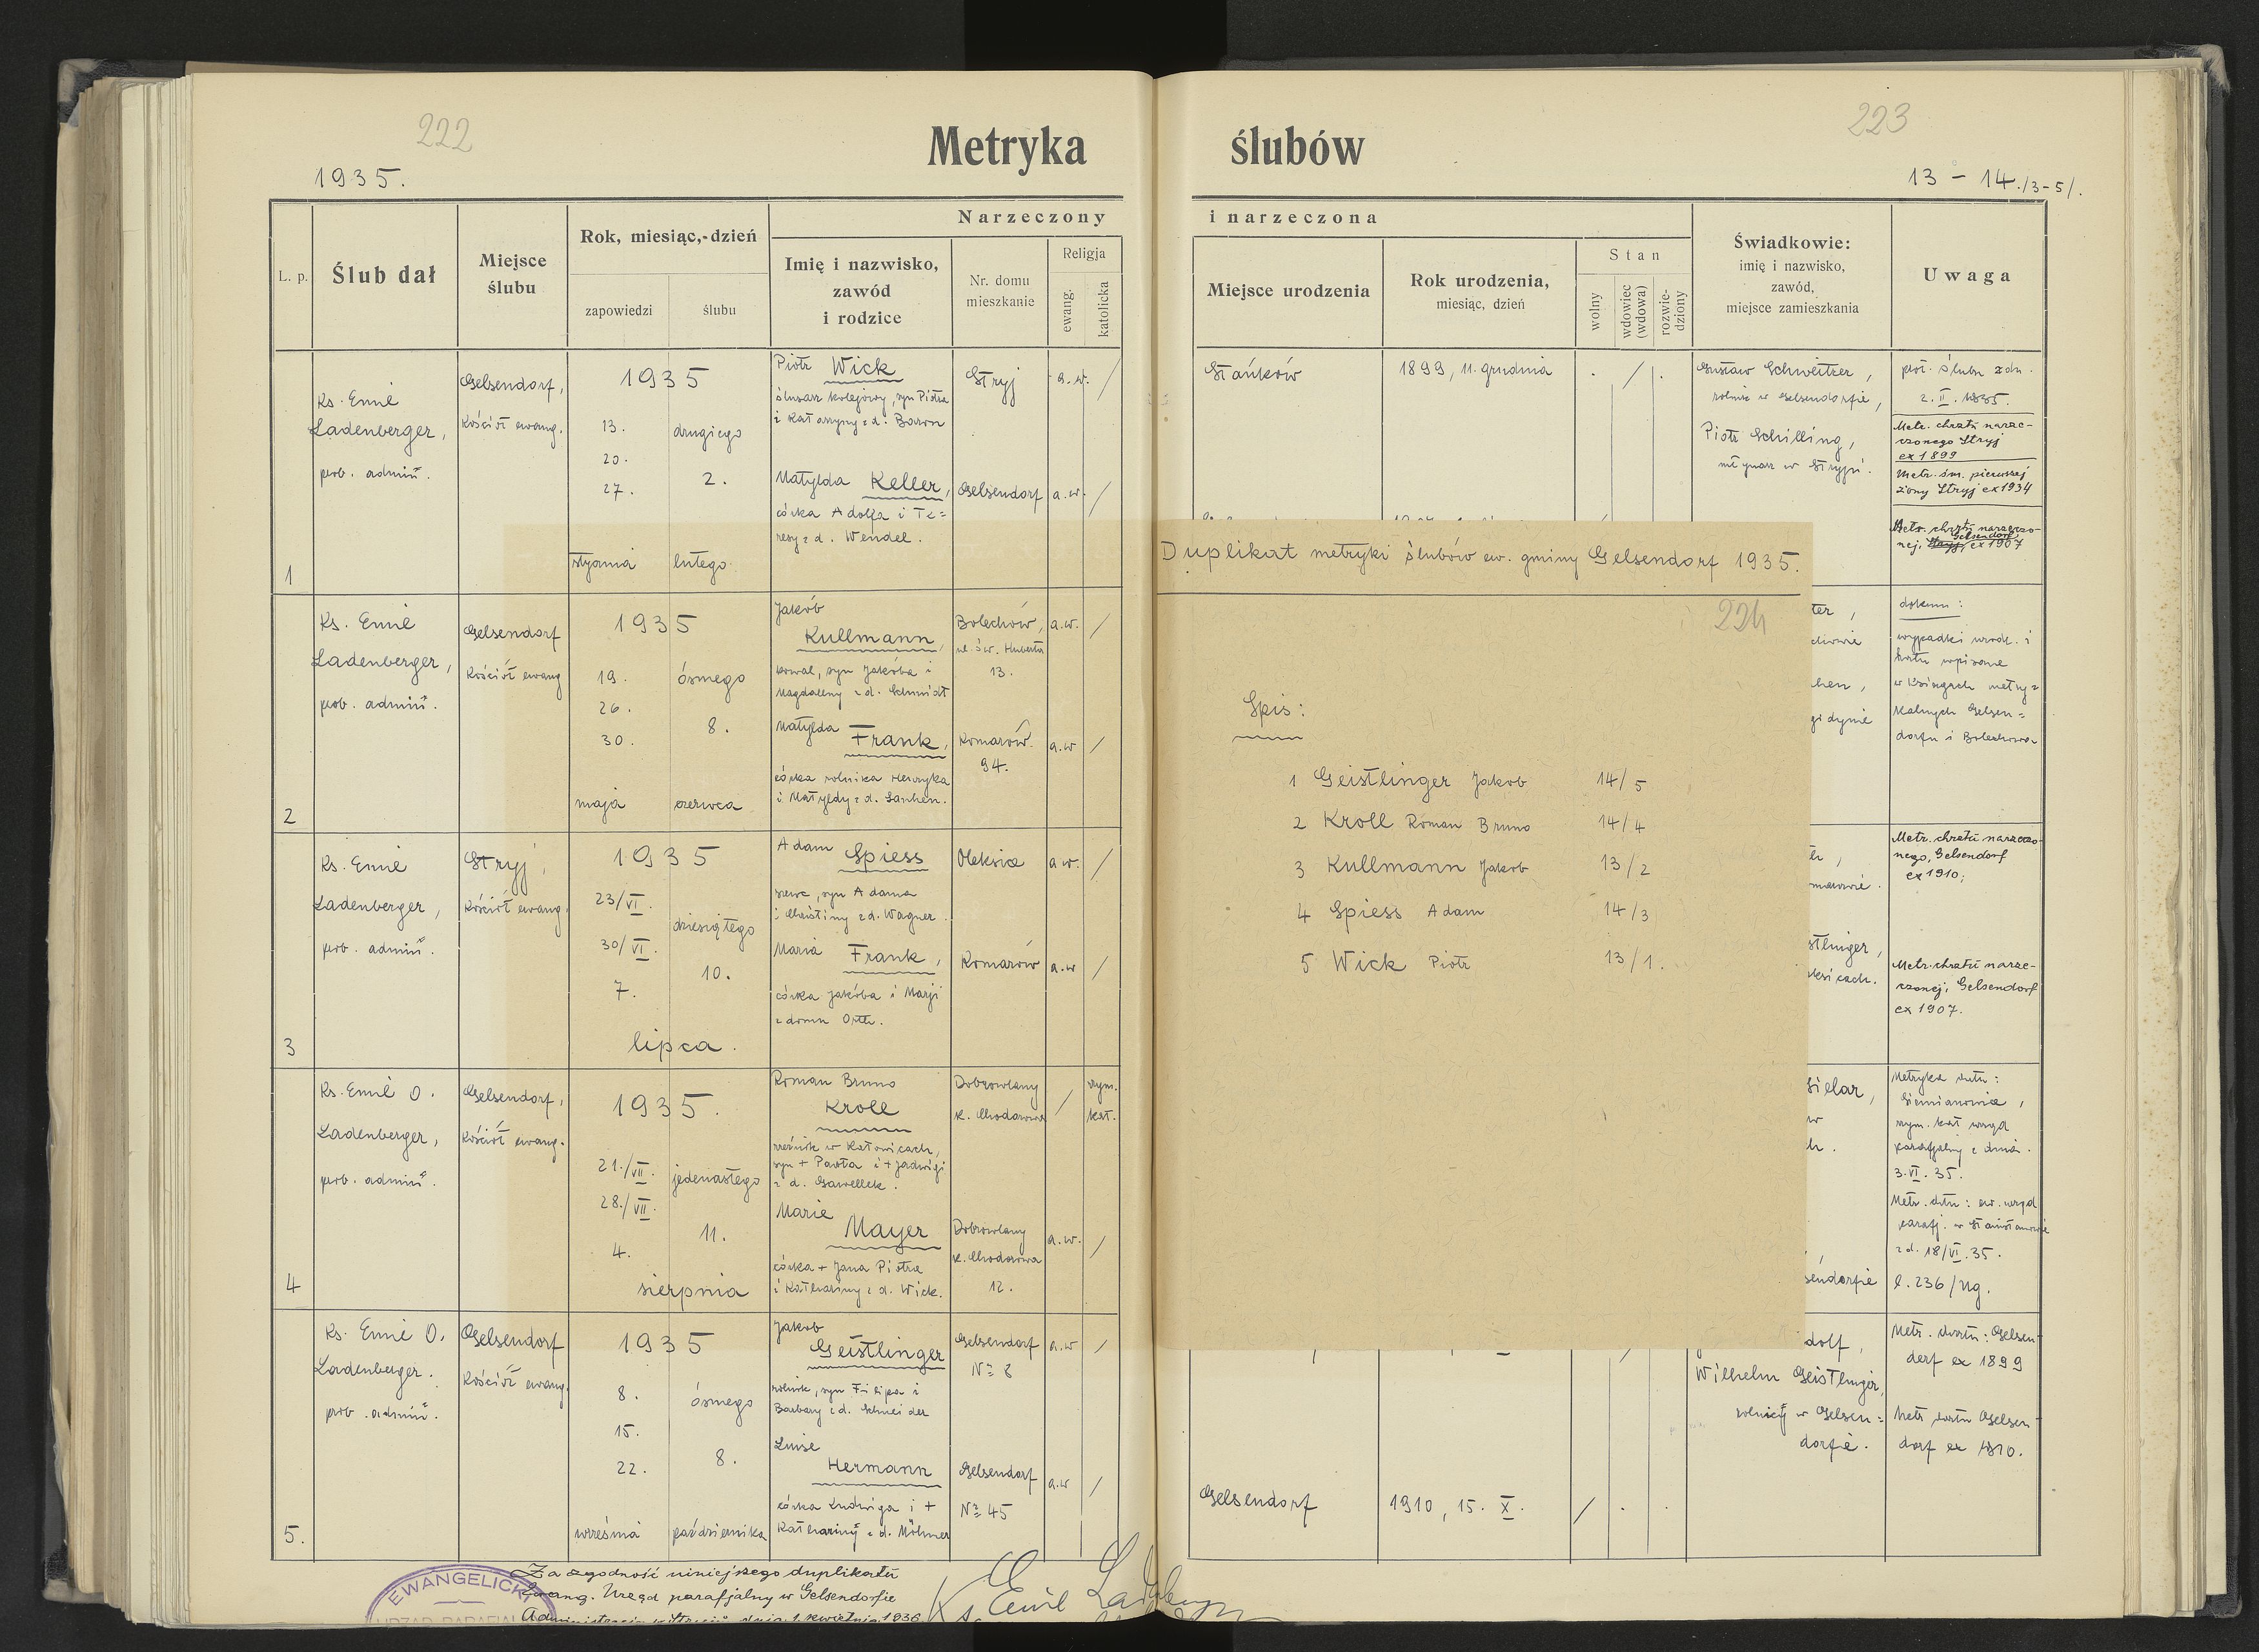 222
223
Metryka ślubów
1935.
13 - 14./3-5/.
L. p.
Ślub dał
Miejsce
ślubu
Rok, miesiąc,-dzień
zapowiedzi
ślubu
Narzeczony
i narzeczona
Imię i nazwisko,
zawód
i rodzice
Nr. domu
mieszkanie
Religja
ewang.
katolicka
Miejsce urodzenia
Rok urodzenia,
miesiąc, dzień
Stan
wolny
wdowiec
(wdowa)
rozwie-
dziony
Świadkowie:
imię i nazwisko,
zawód,
miejsce zamieszkania
Uwaga
1
Ks. Emil
Ladenberger,
prob. admiń.
Gelsendorf,
Kościół ewang.
1935
13.
20.
27.
stycznia
drugiego
2.
lutego
Piotr Wick
ślusarz kolejowy, syn Piotra
i Katarzyny z d. Baron
Stryj
a.w. /
Matylda Keller,
córka Adolfa i Te=
resy z d. Wendel.
Gelsendorf
a.w. /
Stańków
1899, 11. grudnia
. / .
Gustaw Schweitzer,
rolnik w Gelsendorfie,
Piotr Schilling,
młynarz w Stryju.
pot. ślubu zdn.
2. II. 1935.
Metr. chrztu narze-
czonego Stryj
ex 1899
Metr. śm. pierwszej
żony Stryj ex 1934
Metr. chrztu narzeczo-
nej, Gelsendorf ex 1907
2
Ks. Emil
Ladenberger,
prob. admiń.
Gelsendorf
Kościół ewang
1935
19.
26.
30.
maja
ósmego
8.
czerwca
Jakób
Kullmann,
kowal, syn Jakóba i
Magdaleny z d. Schmidt
Bolechów,
ul. św. Huberta
13.
a.w. /
Matylda Frank,
córka rolnika Henryka
i Matyldy z d. Sauhen.
Komarów
94.
a.w /
dokum:
wypadki urodz. i
chrztu wpisane
w księgach metry=
kalnych Gelsen=
dorfu i Bolechowa
3
Ks. Emil
Ladenberger,
prob. admiń.
Stryj,
Kościół ewang.
1935
23/VI.
30/VI.
7.
lipca.
dziesiątego
10.
Adam Spiess
szewc, syn Adama
i Christiny z d. Wagner.
Oleksice
a w. /
Maria Frank,
córka Jakóba i Marji
z domu Orth.
Komarów
a.w /
Metr. chrztu narzeczo-
nego, Gelsendorf
ex 1910;
Metr. chrztu narze-
czonej, Gelsendorf
ex 1907.
4
Ks. Emil O.
Ladenberger,
prob. admiń.
Gelsendorf,
Kościół ewang.
1935.
21./VII.
28./VII.
4.
sierpnia
jedenastego
11.
Roman Bruno
Kroll
rzeźnik w Katowicach,
syn + Pawła i + Jadwigi
z d. Gawellek.
Dobrowlany
k. Chodorowa
/ rzym.
kat.
Marie
Mayer
córka + Jana Piotra
i Kathariny z d. Wick.
Dobrowlany
k. Chodorowa
12.
a.w. /
Metryka chrztu:
Siemianowice,
rzym. kat urząd
parafjalny z dnia
3. VI. 35.
Metr. chrztu: ew. urząd
parafj. w Stanisławowie
z d. 18/VI. 35.
l. 236/Ug.
5.
Ks. Emil O.
Ladenberger.
prob. admiń.
Gelsendorf
Kościół ewang.
1935
8.
15.
22.
września
ósmego
8.
października
Jakob
Geistlinger
rolnik, syn Filipa i
Barbary z d. Schneider
Gelsendorf
№ 8
a.w /
Luise
Hermann
córka Ludwiga i +
Kathariny z d. Möhmer
Gelsendorf
№ 45
a.w /
Gelsendorf
1910, 15. X.
/ . .
dolf,
Wilhelm Geistlinger,
rolnicy w Gelsen=
dorfie.
Metr. chrztu: Gelsen-
dorf ex 1899
Metr chrztu Gelsen-
dorf ex 1910.
Duplikat metryki ślubów ew. gminy Gelsendorf 1935.
224
Spis:
1 Geistlinger Jakob 14/5
2 Kroll Roman Bruno 14/4
3 Kullmann Jakob 13/2
4 Spiess Adam 14/3
5 Wick Piotr 13/1.
EWANGELICKI
URZĄD PARAFIAL
Za zgodność niniejszego duplikatu
Ewang. Urząd parafjalny w Gelsendorfie
Administracja w Stryju, dnia 1. kwietnia 1936
Ks Emil Ladenberger